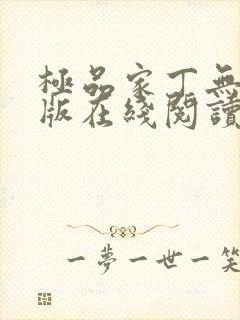 極品家丁無
版在綫閱讀
一夢一世一笑